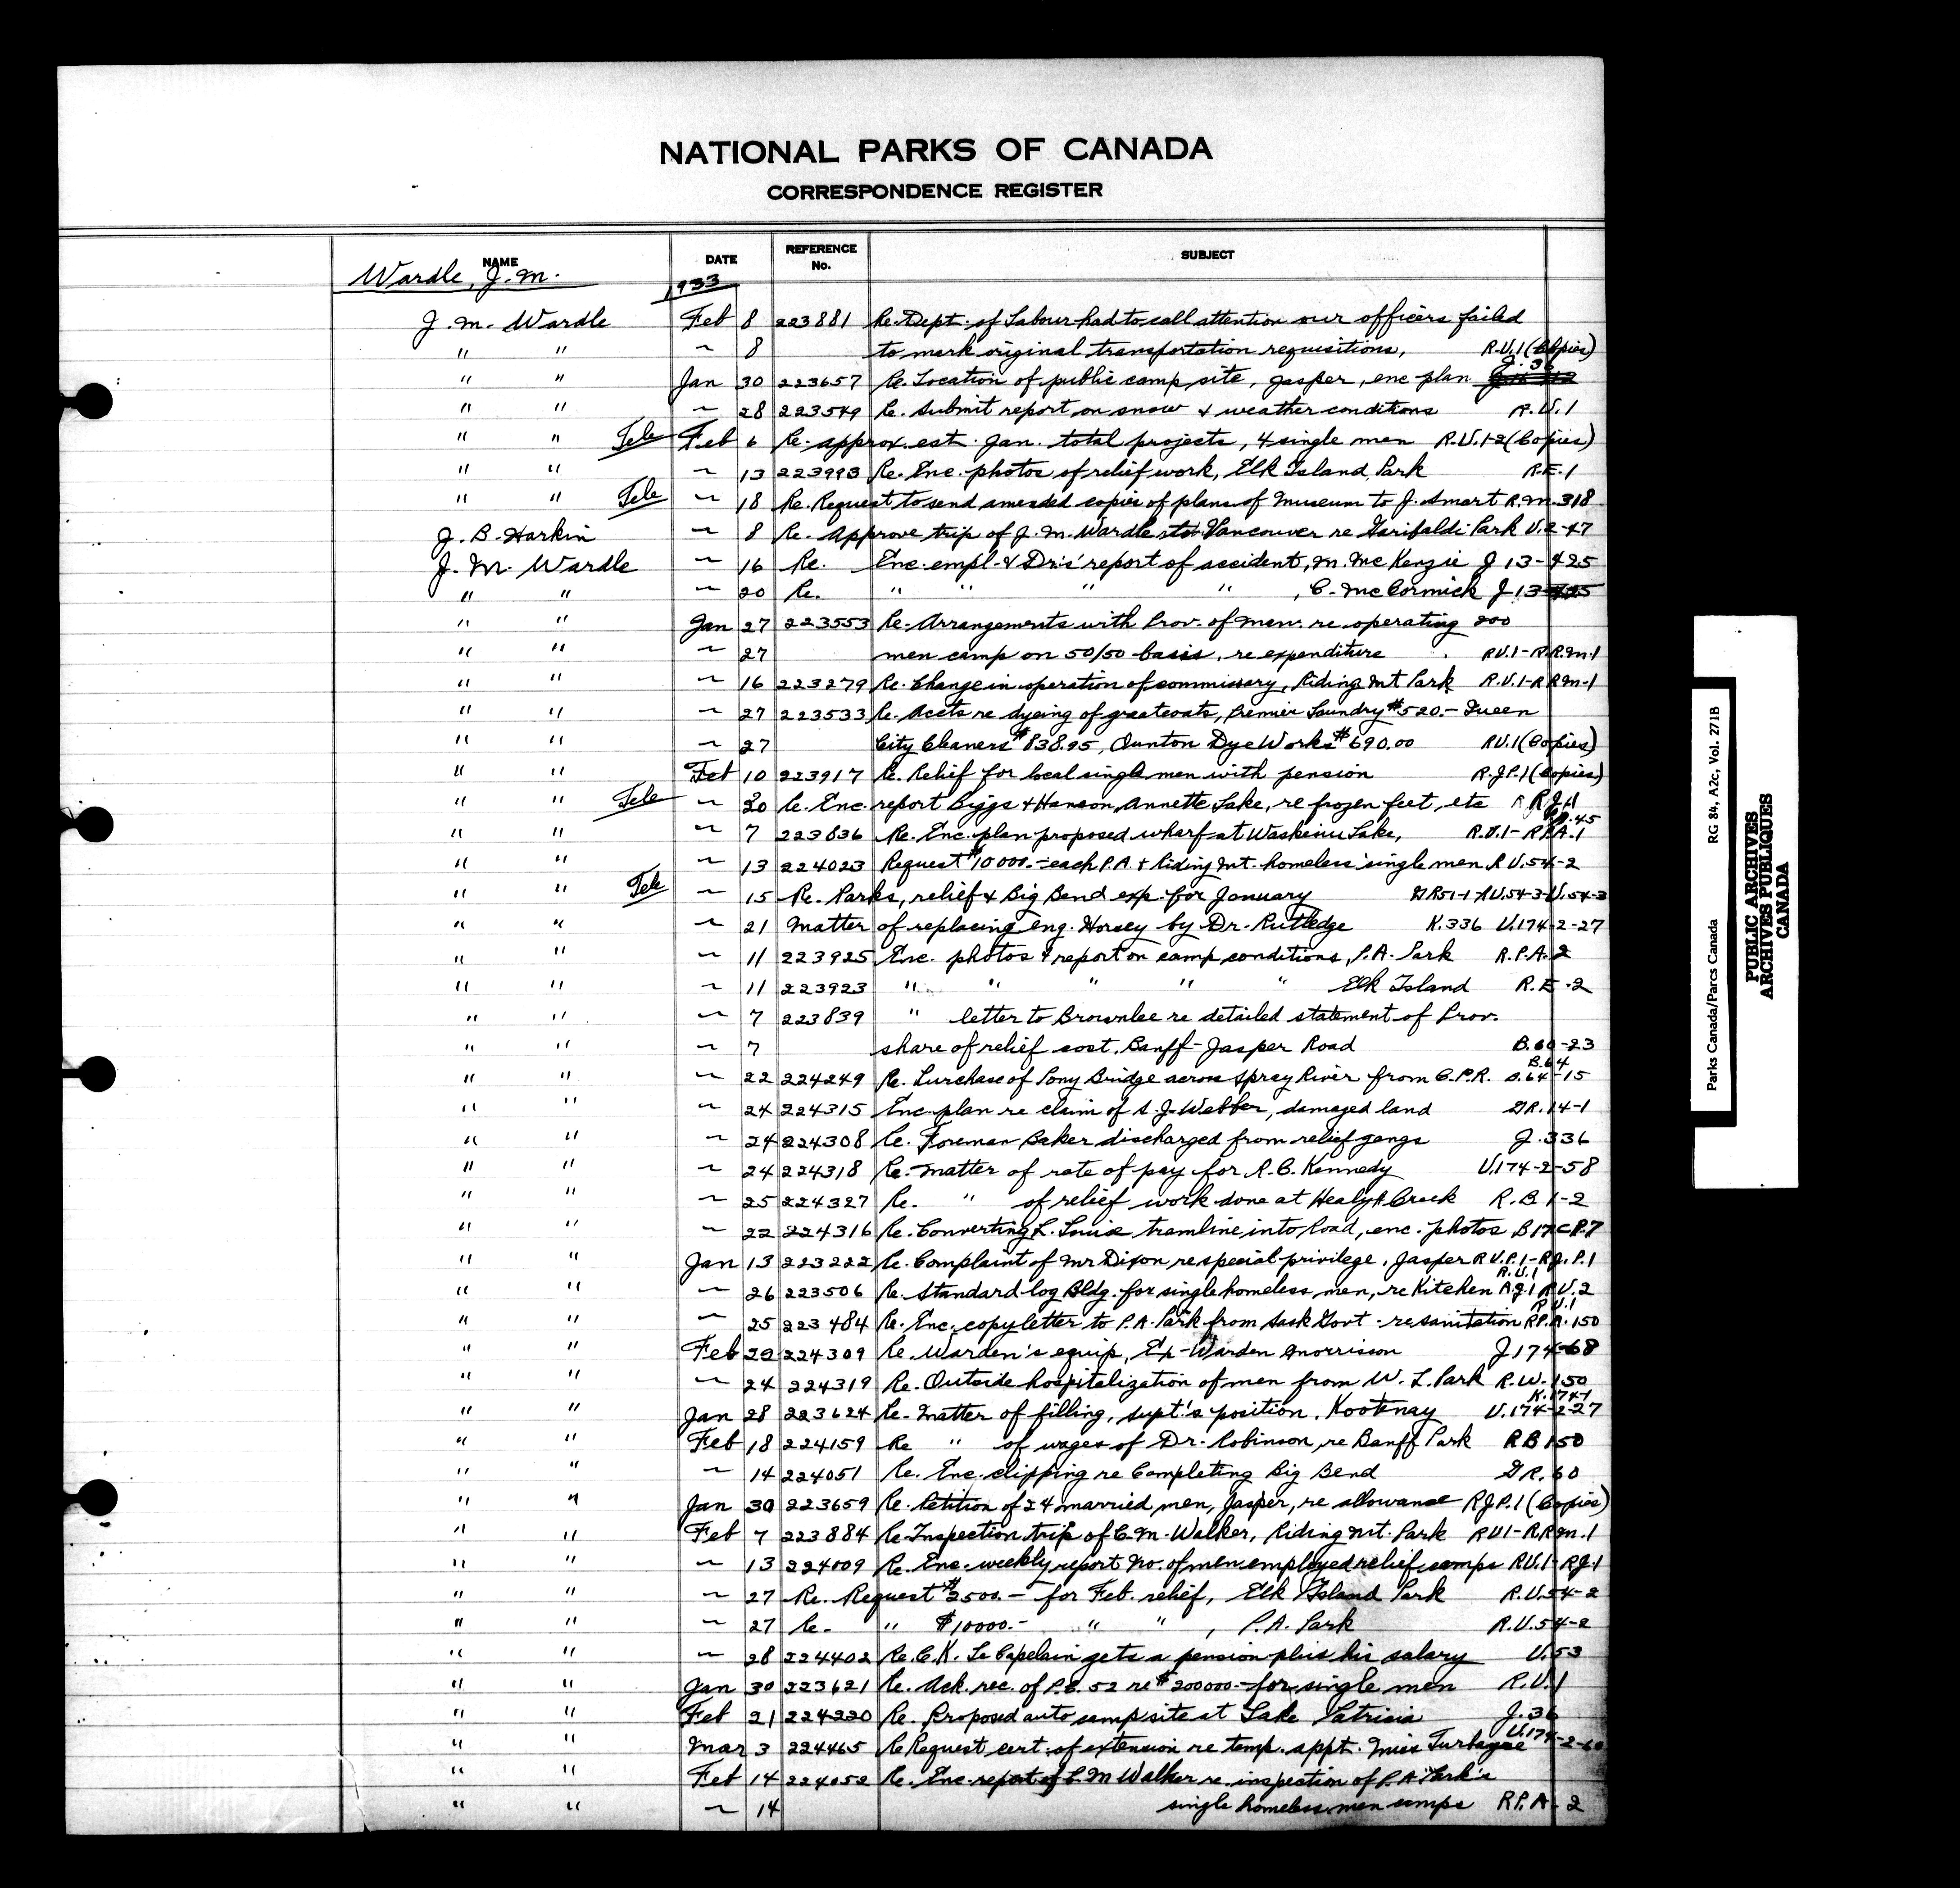 NATIONAL PARKS OF CANADA
CORRESPONDENCE REGISTER
NAME DATE REFERENCE No. SUBJECT
Wardle, J. M. 1933
J. M. Wardle Feb 8 223881 Re. Dept. of Labour had to call attention our officers failed
" " ~ 8 to mark original transportation requisitions, R.U.1 (Copies)
" " Jan 30 223657 Re. Location of public camp site, Jasper, enc plan J. 36
" " ~ 28 223549 Re. Submit report on snow & weather conditions R.U.1
" " Tele Feb 6 Re. approx. est. Jan. total projects, & single men R.U.1-2 (Copies)
" " ~ 13 223993 Re. Enc. photos of relief work, Elk Island Park R.E.1
" " Tele ~ 18 Re. Request to send amended copies of plans of Museum to J. Smart R.M.318
J. B. Harkin ~ 8 Re. Approve trip of J. M. Wardle to Vancouver re Garibaldi Park U.2-47
J. M. Wardle ~ 16 Re. Enc. empl. & Dr's report of accident, M. McKenzie J 13-425
" " ~ 20 Re. " " " , C. McCormick J 13-425
" " Jan 27 223553 Re. Arrangements with Prov. of Man. re operating 200
" " ~ 27 men camp on 50/50 basis, re expenditure RU.1-R.R.M.1
" " ~ 16 223279 Re. Change in operation of commissary, Riding Mt Park R.U.1-R R M-1
" " ~ 27 223533 Re. Accts re dyeing of greatcoats, Premier Laundry $520.- Queen
" " ~ 27 City Cleaners $838.95, Quinton Dye Works $690.00 RU.1 (Copies)
" " Feb 10 223917 Re. Relief for local single men with pension R.J.P.1 (Copies)
" " Tele ~ 20 Re. Enc. report Biggs & Hanson, Annette Lake, re frozen feet, etc R J.1
" " ~ 7 223836 Re. Enc. plan proposed wharf at Waskesiu Lake, R.U.1-R.P.A.1
" " ~ 13 224023 Request $10000.- each P.A. & Riding Mt. homeless single men R U.54-2
" " Tele ~ 15 Re. Parks, relief & Big Bend exp. for January GR51-1-RU.54-3-U.54-3
" " ~ 21 Matter of replacing eng. Horsey by Dr. Rutledge K.336 U.174-2-27
" " ~ 11 223925 Enc. photos & report on camp conditions, P.A. Park R.P.A.2
" " ~ 11 223923 " " " " " Elk Island R.E.2
" " ~ 7 223839 " letter to Brownlee re detailed statement of Prov.
" " ~ 7 share of relief cost, Banff-Jasper Road B.60-23
" " ~ 22 224249 Re. Purchase of Pony Bridge across Spray River from C.P.R. B.64-15
" " ~ 24 224315 Enc. plan re claim of S. J. Webber, damaged land GR.14-1
" " ~ 24 224308 Re. Foreman Baker discharged from relief gangs J.336
" " ~ 24 224318 Re. Matter of rate of pay for R. C. Kennedy U.174-2-58
" " ~ 25 224327 Re. " of relief work done at Healy Creek R.B 1-2
" " ~ 22 224316 Re. Converting L. Louise tramline into Road, enc. photos B 17 C P.7
" " Jan 13 223222 Re. Complaint of Mr Dixon re special privilege, Jasper R U.P.1-R.J.P.1
" " ~ 26 223506 Re. Standard log Bldg. for single homeless men, re Kitchen R.J.1 R.U.2 R.U.1
" " ~ 25 223484 Re. Enc. copy letter to P.A. Park from Sask Govt - re sanitation R.P.A.150 R U.1
" " Feb 22 224309 Re. Warden's equip, Ex-Warden Morrison J 174-68
" " ~ 24 224319 Re. Outside hospitalization of men from W. L. Park R.W.150
" " Jan 28 223624 Re. Matter of filling, supt's position, Kootenay U.174-2-27 K.174-1
" " Feb 18 224159 Re " of wages of Dr. Robinson, re Banff Park R B 150
" " ~ 14 224051 Re. Enc. clipping re Completing Big Bend GR.60
" " Jan 30 223659 Re. Petition of 24 married men, Jasper, re allowance R.J.P.1 (Copies)
" " Feb 7 223884 Re. Inspection trip of C. M. Walker, Riding Mt. Park R U1-R.R.M.1
" " ~ 13 224009 Re. Enc. weekly report No. of men employed relief camps RU.1-RJ.1
" " ~ 27 Re. Request $2500.- for Feb. relief, Elk Island Park R.U.54-2
" " ~ 27 Re. " $10000.- " " , P.A. Park R.U.54-2
" " ~ 28 224402 Re. C. K. LeCapelain gets a pension plus his salary U.53
" " Jan 30 223621 Re. Ack. rec. of P.C. 52 re $200000.- for single men R.U.1
" " Feb 21 224220 Re. Proposed auto camp site at Lake Patricia J.36
" " Mar 3 224465 Re Request cert. of extension re temp. appt. Miss U.174-2-60
" " Feb 14 224052 Re. Enc. report of C. M Walker re inspection of P.A. Park's
" " ~ 14 single homeless men camps R.P.A-2
Parks Canada/Parcs Canada RG 84, A2c, Vol. 271B
PUBLIC ARCHIVES
ARCHIVES PUBLIQUES
CANADA